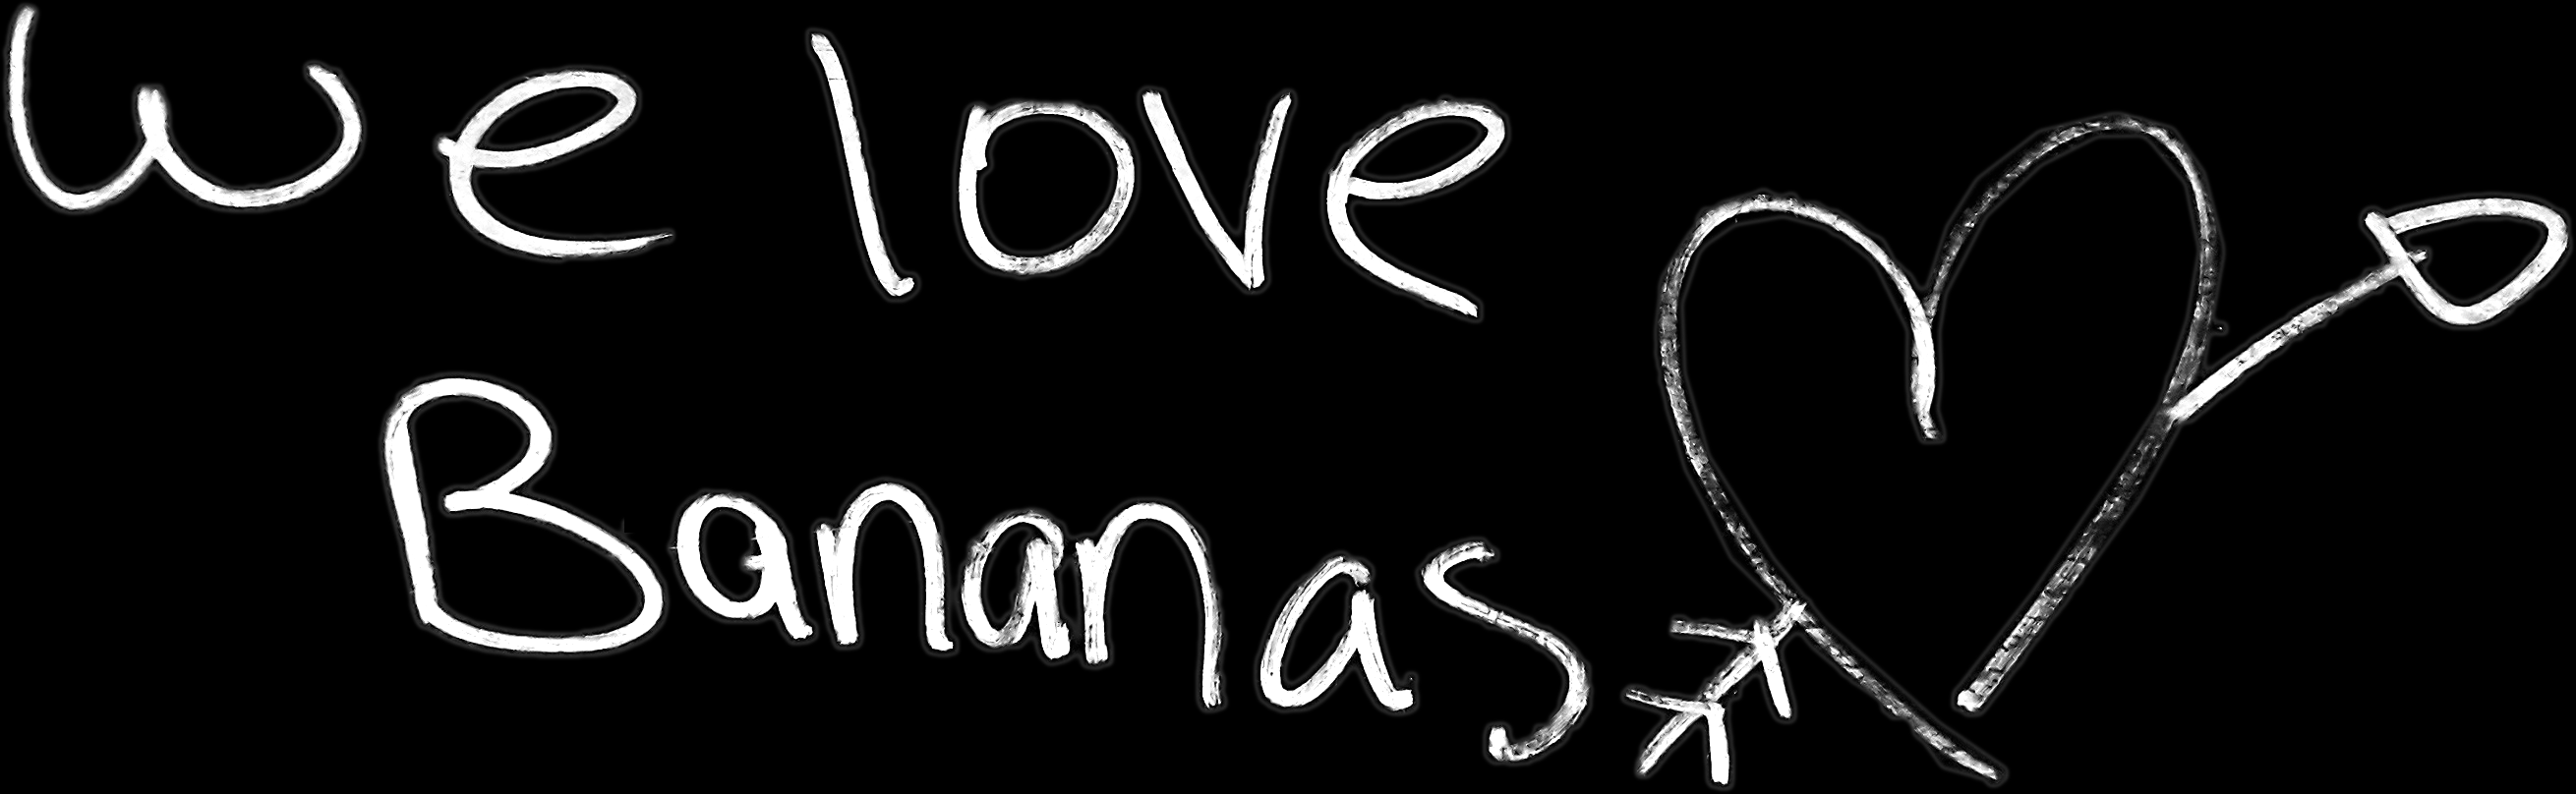 we love
Bananas